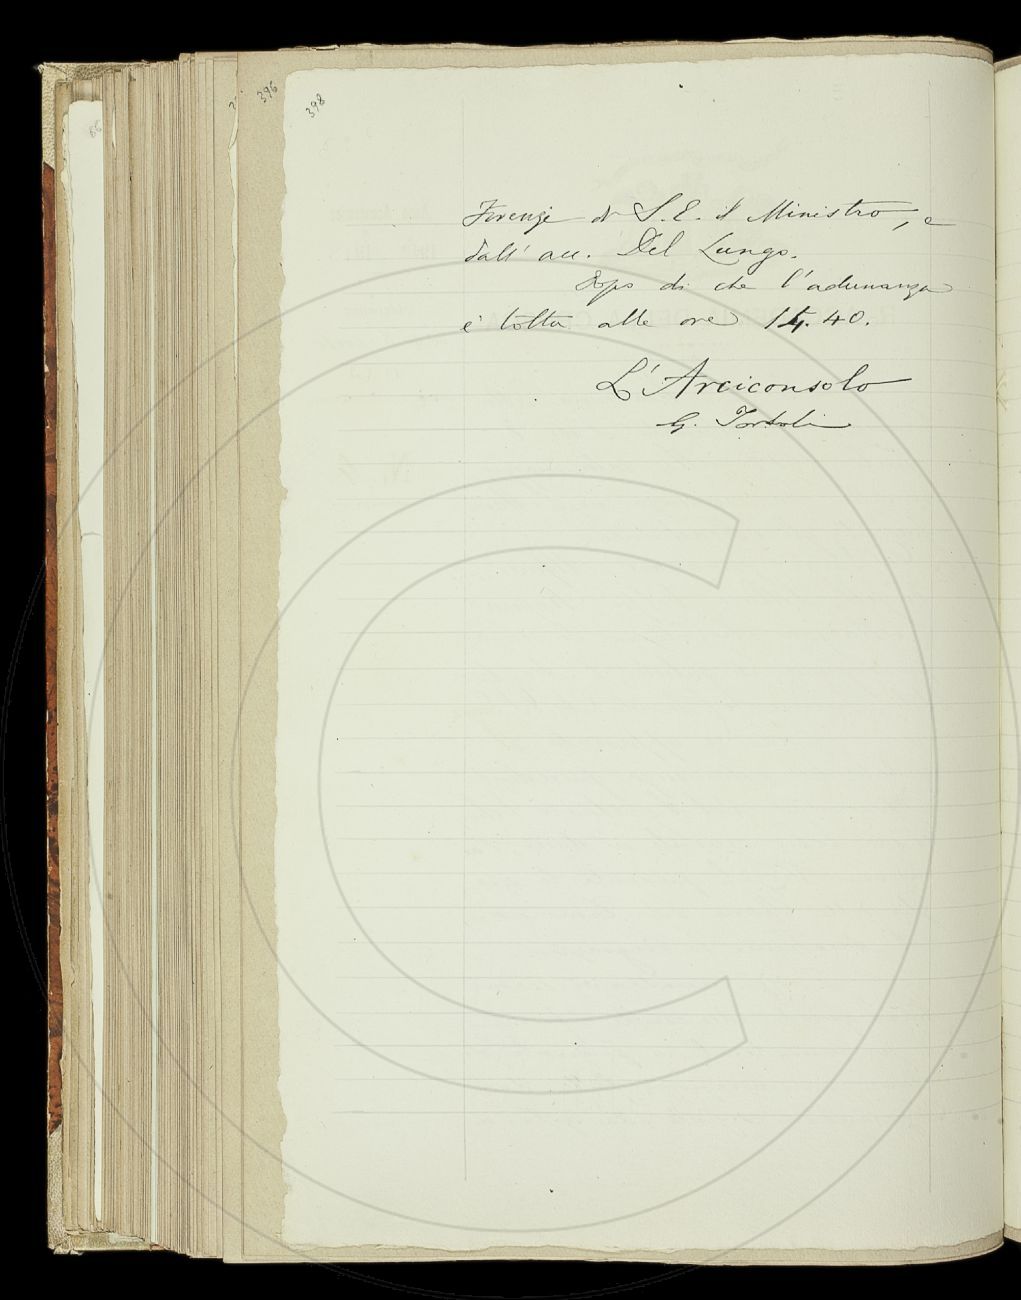 396
398
Firenze di S. E. il Ministro, e
dall' acc. Del Lungo.
Dopo di che l'adunanza
è tolta alle ore 14.40.
L'Arciconsolo
G. Tortoli